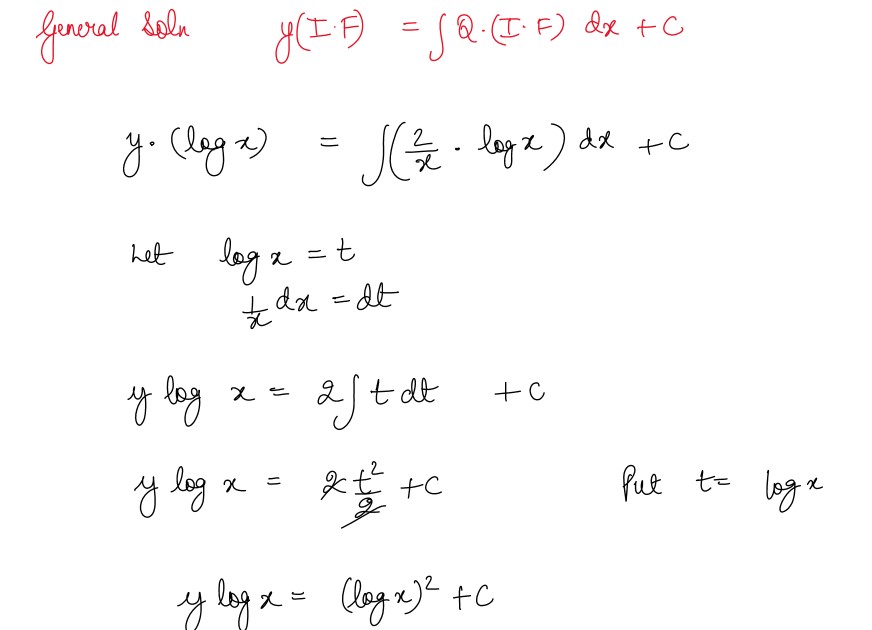 General Soln y(I.F) = ∫Q.(I.F) dx + C
y. (log x) = ∫(2/x . log x) dx + C
Let log x = t
1/x dx = dt
y log x = 2∫t dt + C
y log x = 2 t²/2 + C Put t = log x
y log x = (log x)² + C